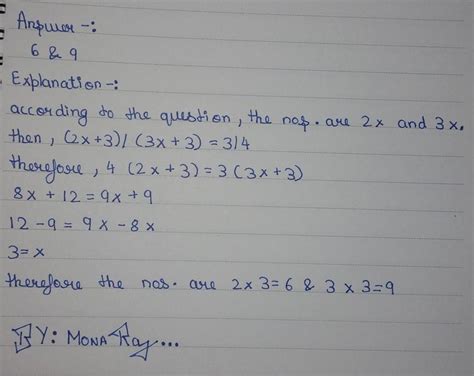 Answer -:
6 & 9
Explanation -:
according to the question, the nos. are 2x and 3x.
then, (2x+3)/ (3x+3) = 3/4
therefore, 4 (2x+3) = 3 (3x+3)
8x + 12 = 9x + 9
12 - 9 = 9x - 8x
3 = x
therefore the nos. are 2x3=6 & 3x3=9
BY: MONA Ray...